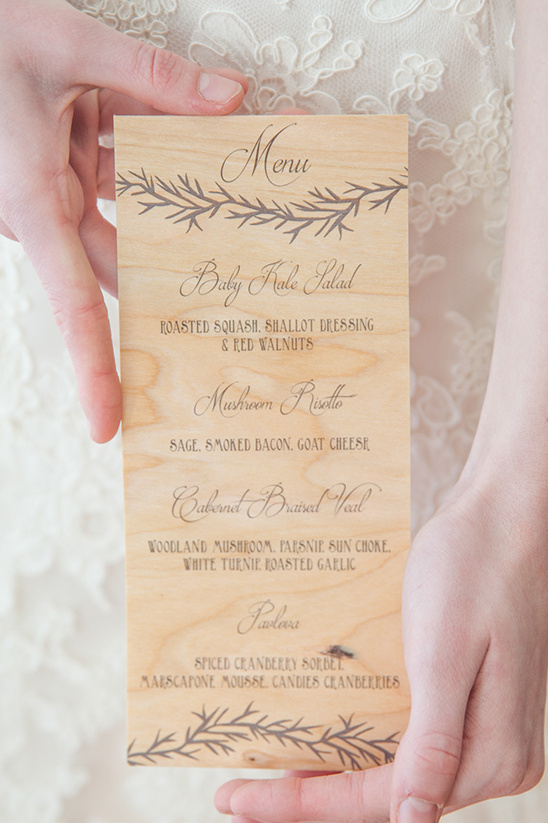 Menu
Baby Kale Salad
ROASTED SQUASH, SHALLOT DRESSING
& RED WALNUTS
Mushroom Risotto
SAGE, SMOKED BACON, GOAT CHEESR
Cabernet Braised Veal
WOODLAND MUSHROOM, PARSNIE SUN CHOKE,
WHITE TURNIE ROASTED GARLIC
Pavlova
SPICED CRANBERRY SORBET,
MARSCAPONE MOUSSE, CANDIES CRANBERRIES